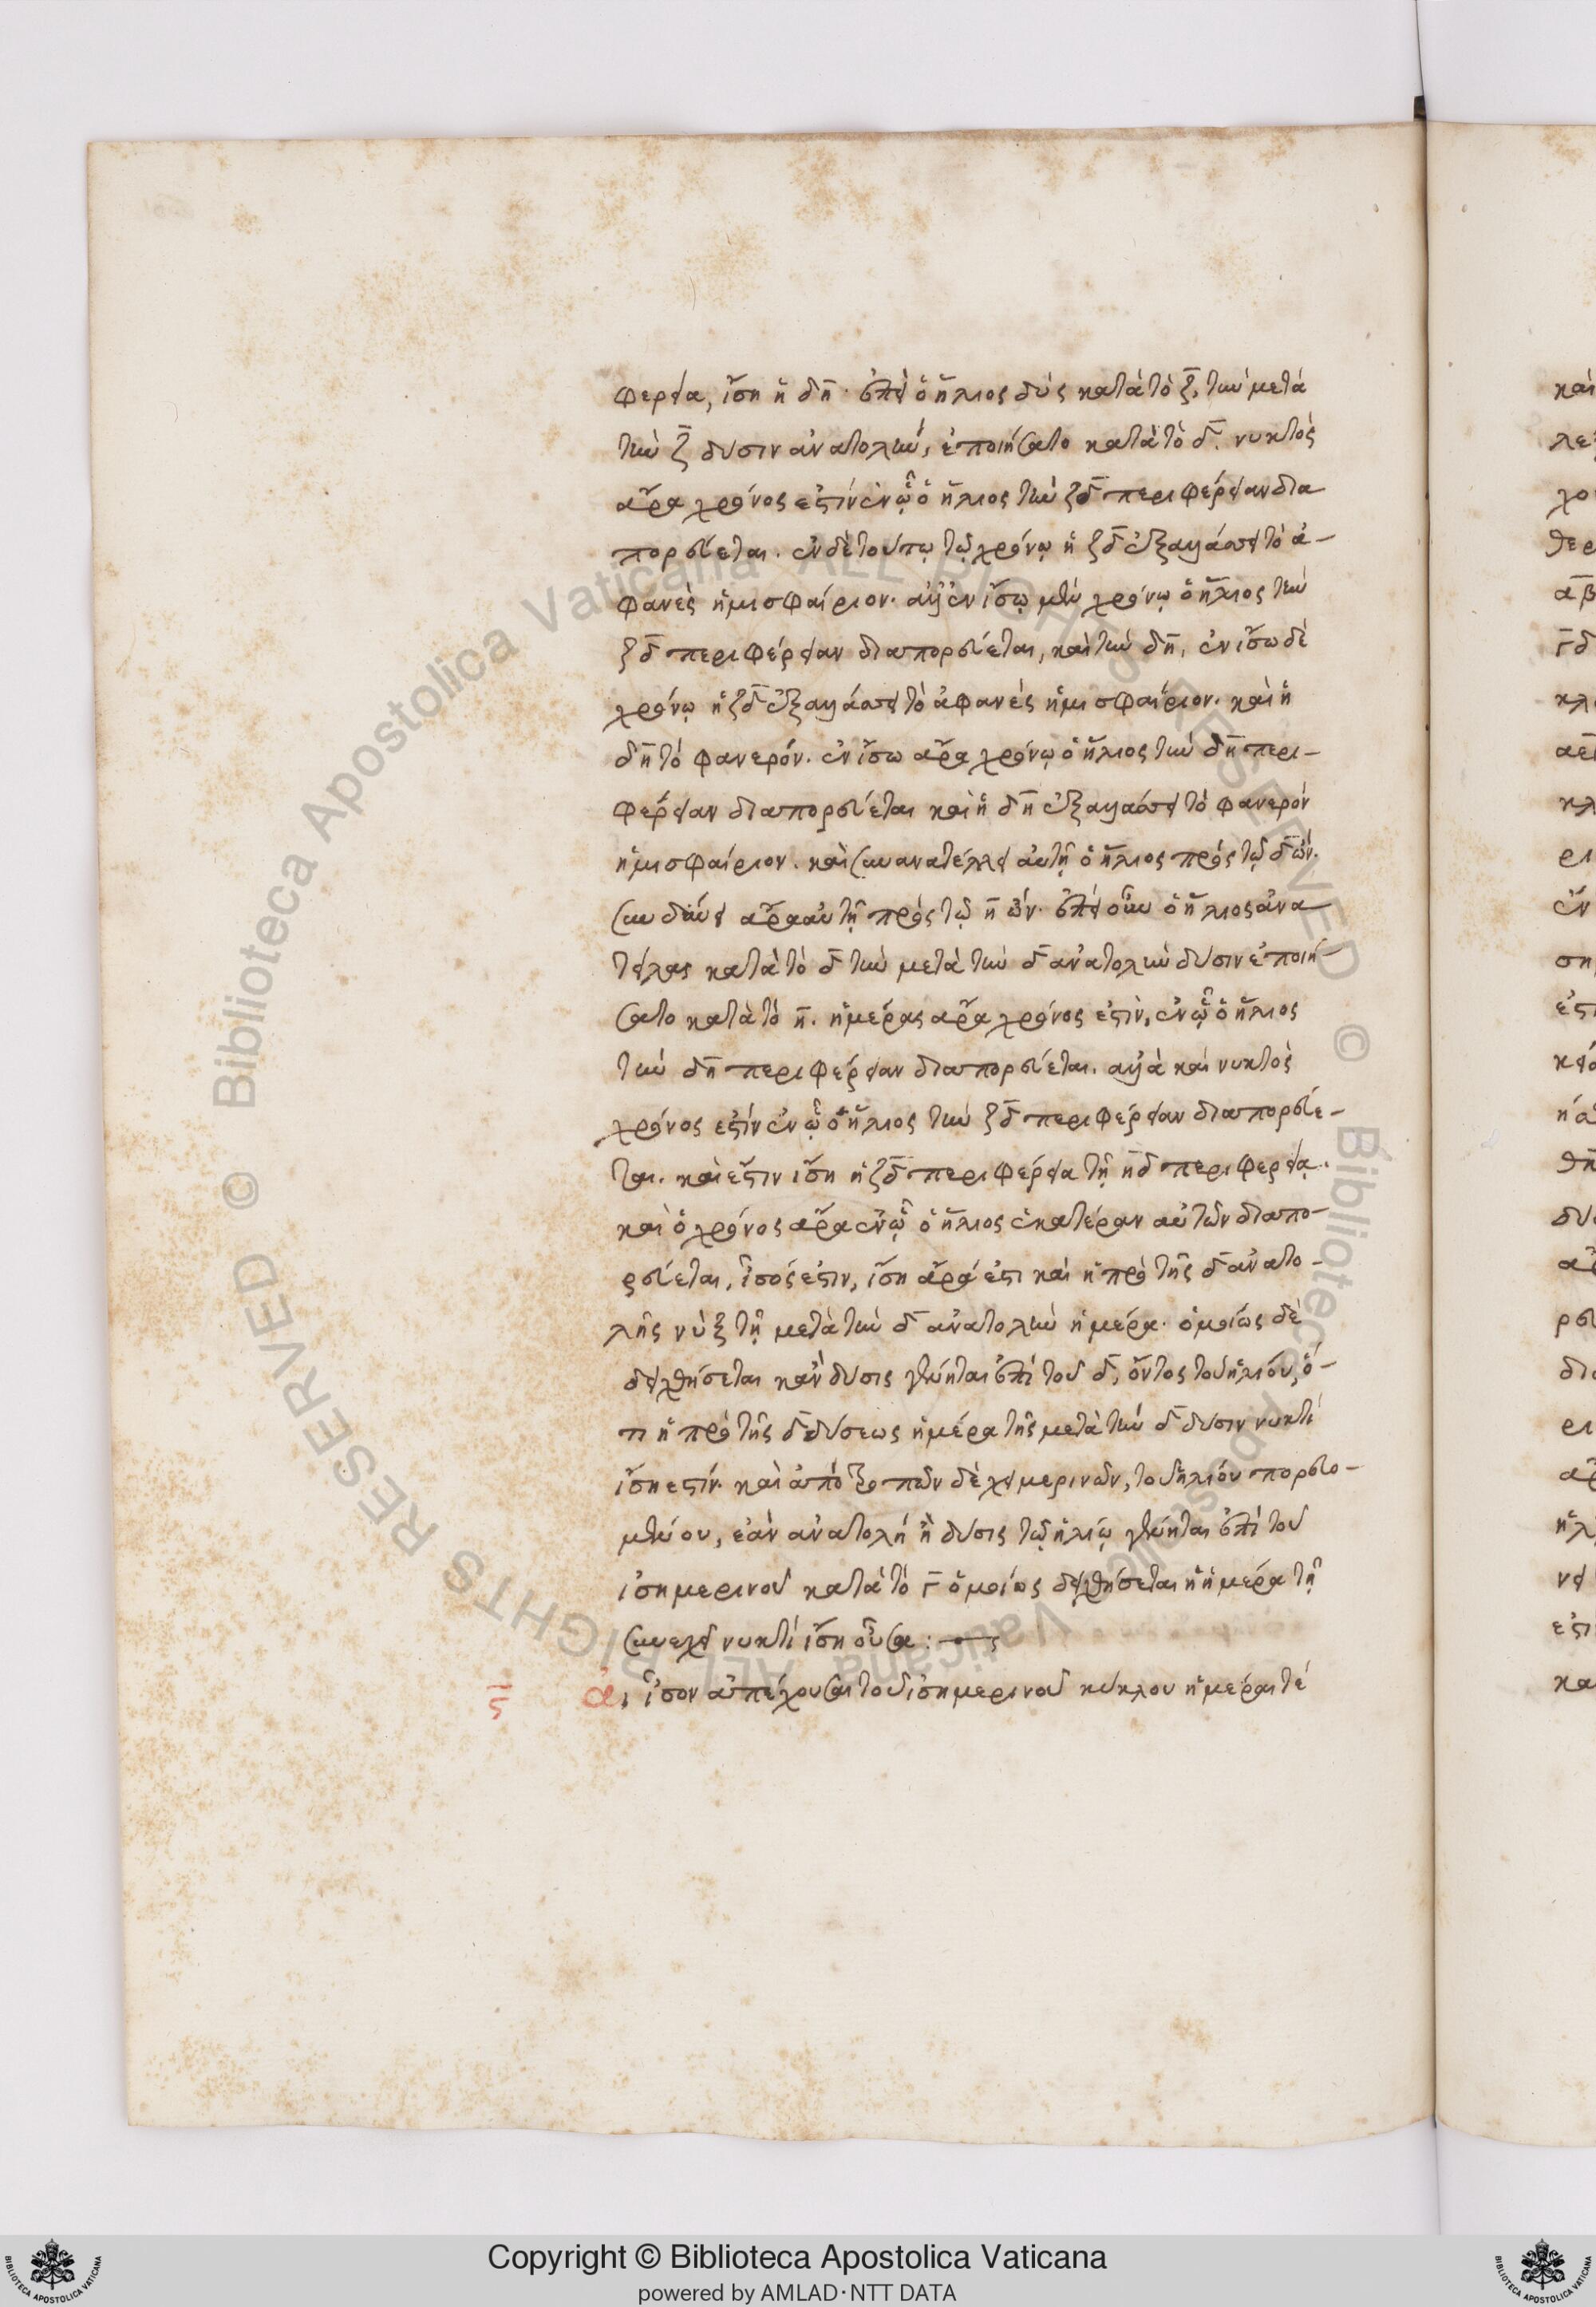 φέρεια, ἴση ἡ δη. ἐπεὶ ὁ ἥλιος δύς κατὰ τὸ ζ, τὴν μετὰ
τὴν ζ δύσιν ἀνατολὴν, ἐποιήσατο κατὰ τὸ δ. νυκτὸς
ἄρα χρόνος ἐστίν ἐν ᾧ ὁ ἥλιος τὴν ζδ περιφέρειαν δια
πορεύεται. ἐν δὲ τούτῳ τῷ χρόνῳ ἡ ζδ ἐξαλλάσσει τὸ ἀ-
φανὲς ἡμισφαίριον. ἀλλ' ἐν ἴσῳ μὲν χρόνῳ ὁ ἥλιος τὴν
ζδ περιφέρειαν διαπορεύεται, καὶ τὴν δη, ἐν ἴσω δὲ
χρόνῳ ἡ ζδ ἐξαλλάσσει τὸ ἀφανὲς ἡμισφαίριον. καὶ ἡ
δη τὸ φανερόν. ἐν ἴσω ἄρα χρόνῳ ὁ ἥλιος τὴν δη περι-
φέρειαν διαπορεύεται καὶ ἡ δη ἐξαλλάσσει τὸ φανερὸν
ἡμισφαίριον. καὶ συνανατέλλει αὐτῇ ὁ ἥλιος πρὸς τῷ δ ὤν.
συνδύνει ἄρα αὐτῇ πρὸς τῷ η ὤν. ἐπεὶ οὖν ὁ ἥλιος ἀνα
τείλας κατὰ τὸ δ τὴν μετὰ τὴν δ ἀνατολὴν δύσιν ἐποιή-
σατο κατὰ τὸ η. ἡμέρας ἄρα χρόνος ἐστὶν, ἐν ᾧ ὁ ἥλιος
τὴν δη περιφέρειαν διαπορεύεται. ἀλλὰ καὶ νυκτὸς
χρόνος ἐστίν ἐν ᾧ ὁ ἥλιος τὴν ζδ περιφέρειαν διαπορεύε-
ται. καὶ ἔστιν ἴση ἡ ζδ περιφέρεια τῇ ηδ περιφερείᾳ.
καὶ ὁ χρόνος ἄρα ἐν ᾧ ὁ ἥλιος ἑκατέραν αὐτῶν διαπο-
ρεύεται, ἴσός ἐστιν, ἴση ἄρα ἐστὶ καὶ ἡ πρὸ τῆς δ ἀνατο-
λῆς νὺξ τῇ μετὰ τὴν δ ἀνατολὴν ἡμέρα. ὁμοίως δὲ
δειχθήσεται κἂν δύσις γένηται ἐπὶ τοῦ δ, ὄντος τοῦ ἡλίου, ὅ-
τι ἡ πρὸ τῆς δ δύσεως ἡμέρα τῆς μετὰ τὴν δ δύσιν νυκτὶ
ἴση ἐστίν. καὶ ἀπὸ τροπῶν δὲ χειμερινῶν, τοῦ ἡλίου πορευο-
μένου, ἐὰν ἀνατολὴ ἢ δύσις τῷ ἡλίῳ γένηται ἐπὶ τοῦ
ἰσημερινοῦ κατὰ τὸ γ ὁμοίως δειχθήσεται ἡ ἡμέρα τῇ
συνεχεῖ νυκτὶ ἴση οὖσα :
ς αἱ ἴσον ἀπέχουσαι τοῦ ἰσημερινοῦ κύκλου ἡμέραι τέ